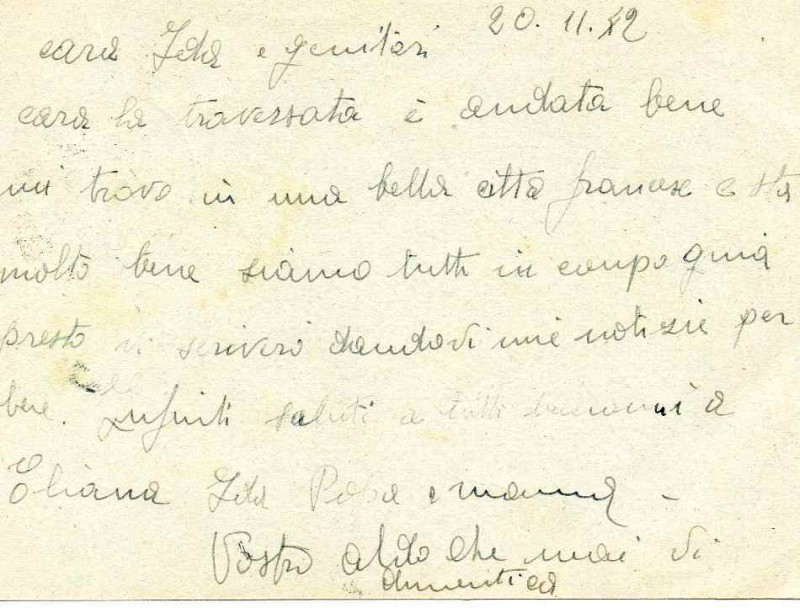 20. 11. 42
cara Ida e genitori
cara la traversata è andata bene
mi trovo in una bella citta francese e sto
molto bene siamo tutti in conpa gnia
presto vi scriverò dandovi mie notizie per
bene. Infiniti saluti a tutti baciami a
Eliana Ida Papa e mamma -
Vostro aldo che mai vi
dimentica